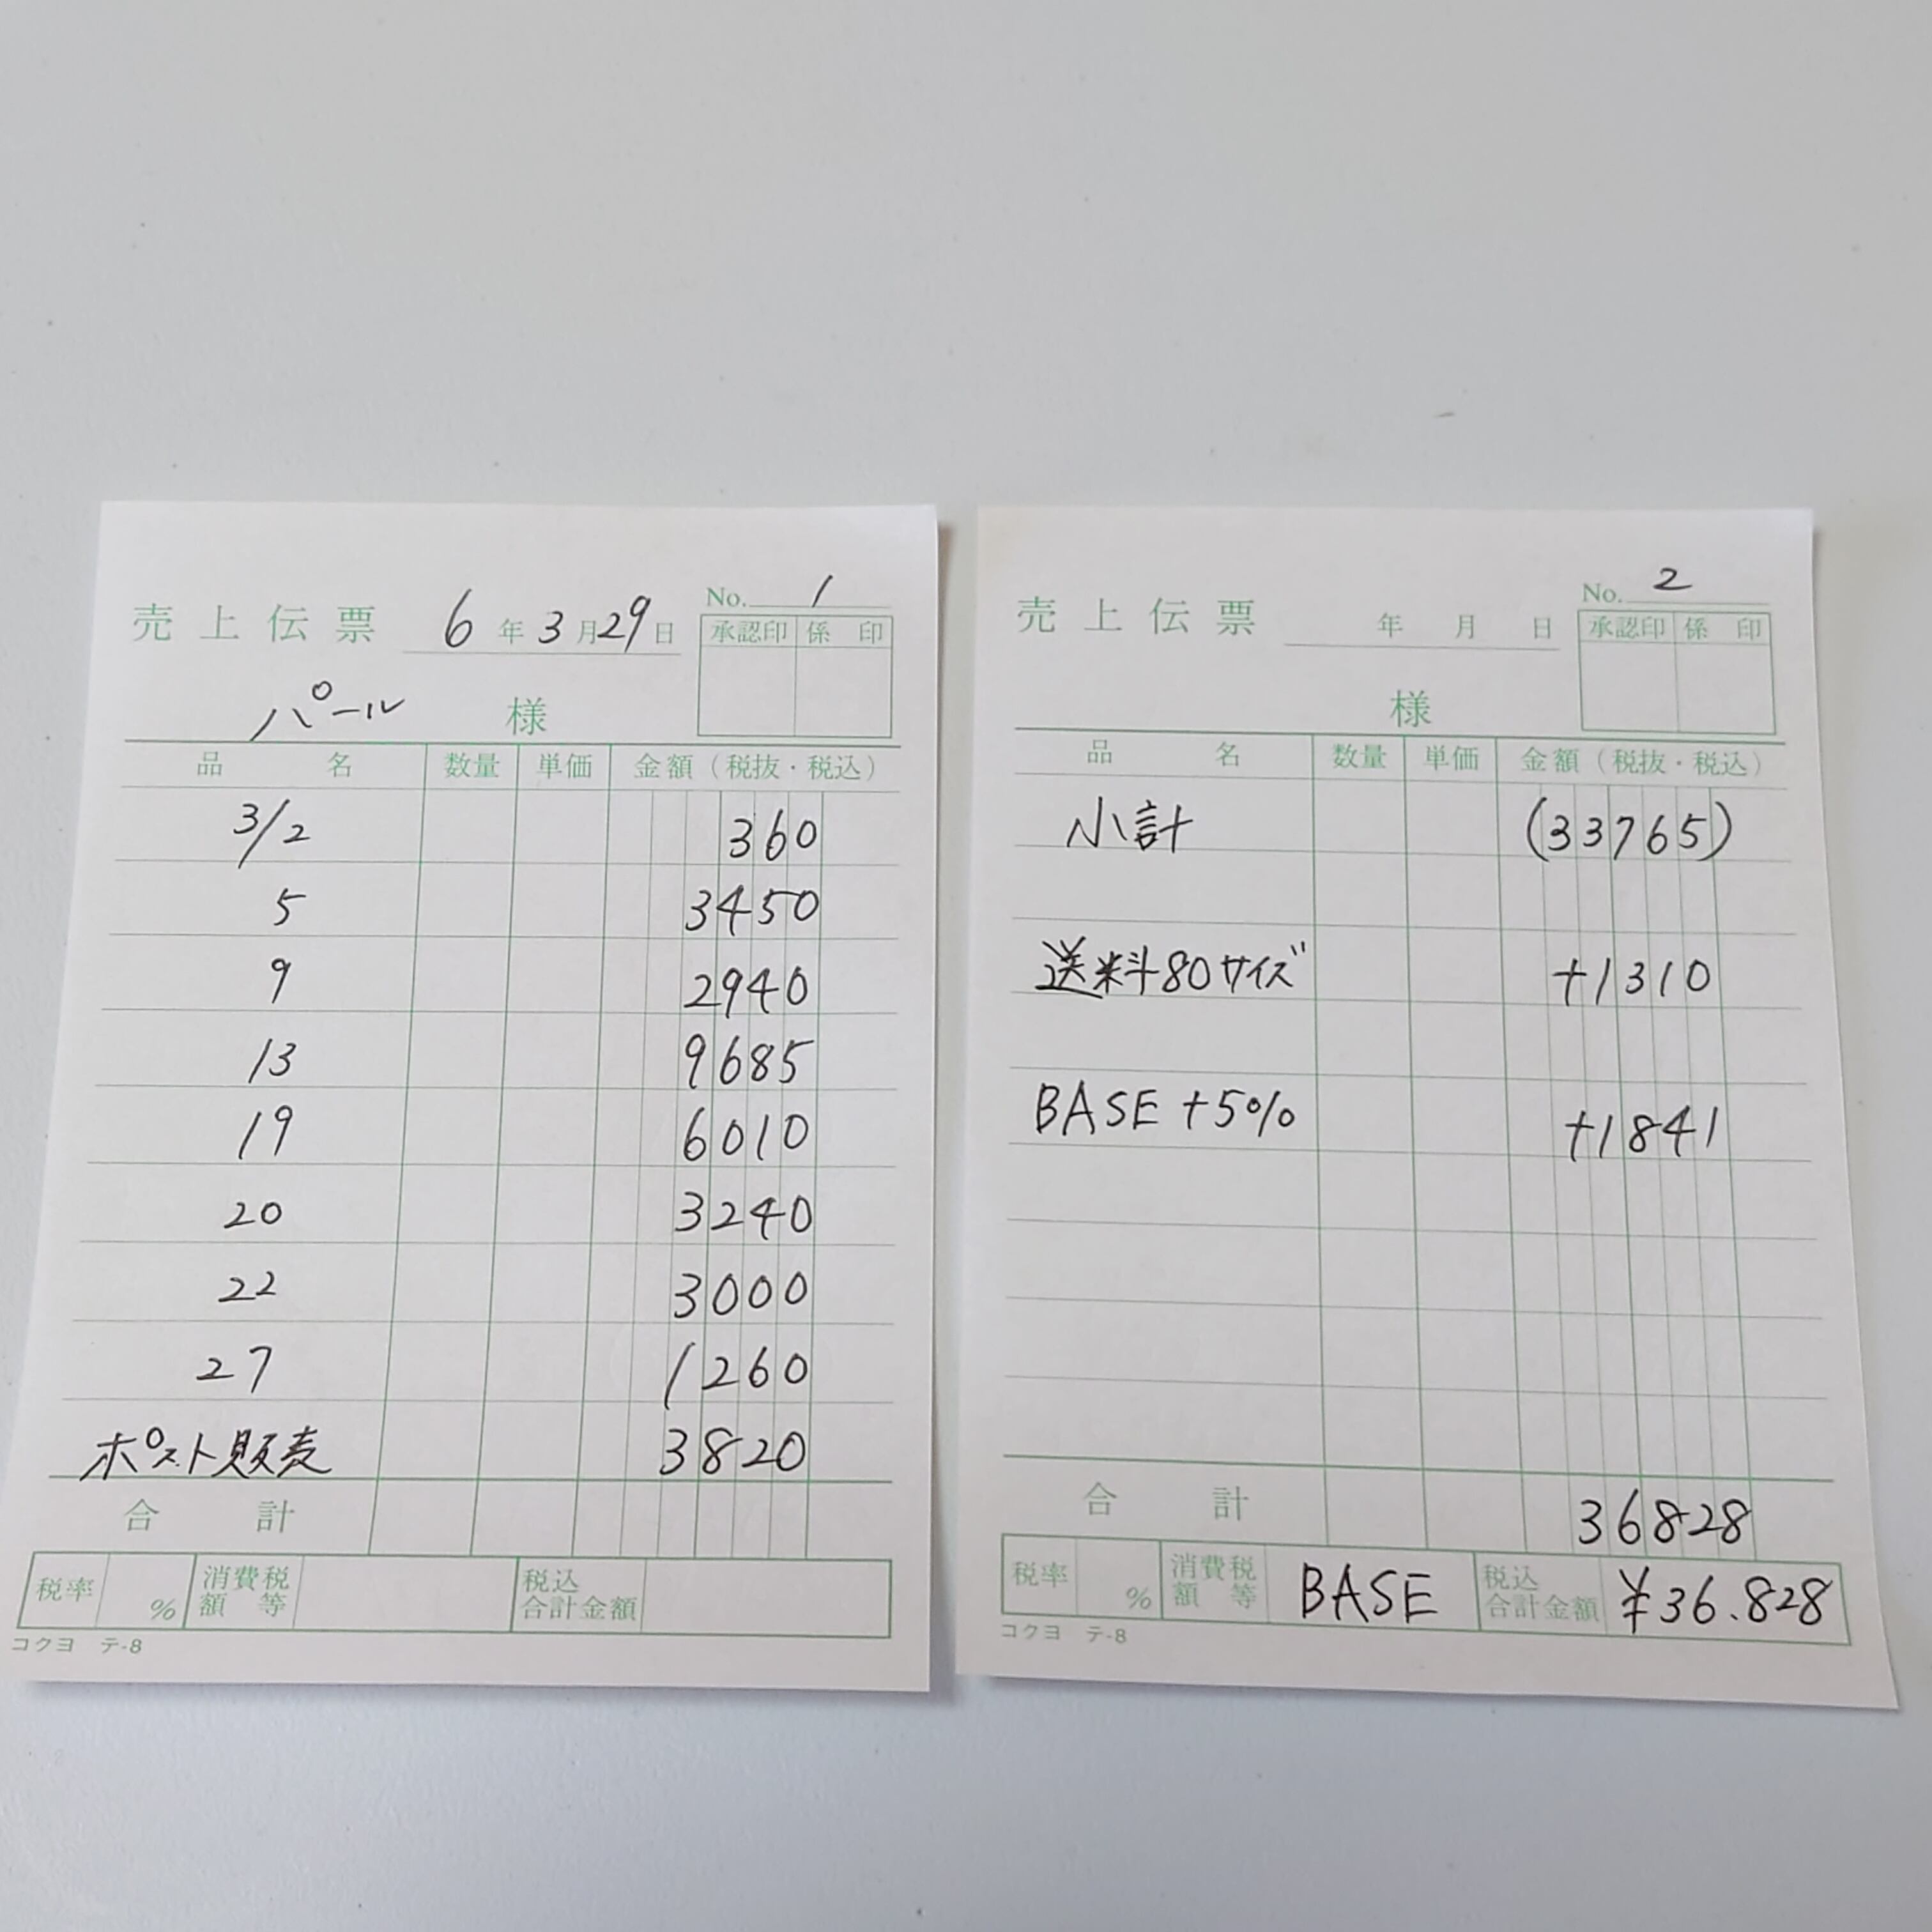 売上伝票 6年3月29日 No. 1
承認印 係印
パール 様
品名 数量 単価 金額（税抜・税込）
3/2 360
5 3450
9 2940
13 9685
19 6010
20 3240
22 3000
27 1260
ポスト販売 3820
合計
税率 % 消費税額等 税込合計金額
コクヨ テ-8
売上伝票 年 月 日 No. 2
承認印 係印
様
品名 数量 単価 金額（税抜・税込）
小計 (33765)
送料80サイズ +1310
BASE +5% +1841
合計 36828
税率 % 消費税額等 BASE 税込合計金額 ¥36.828
コクヨ テ-8